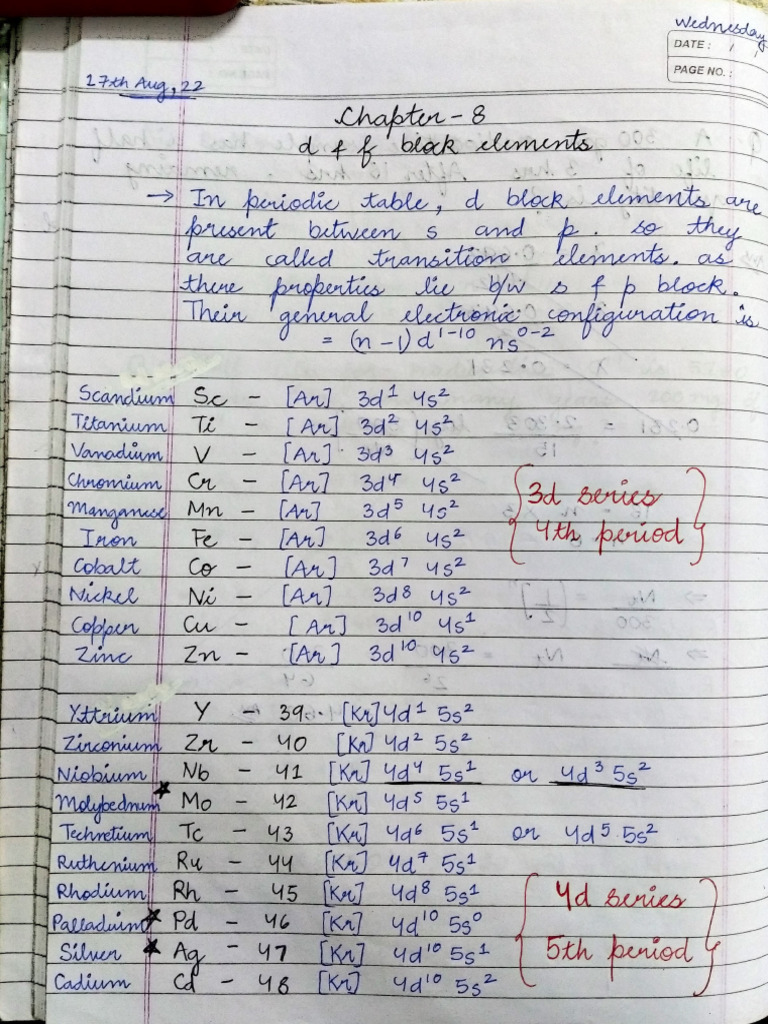 Wednesday
DATE : / /
PAGE NO. :
17th Aug, 22
Chapter - 8
d f f block elements
→ In periodic table, d block elements are
present between s and p. so they
are called transition elements. as
there properties lie b/w s f p block.
Their general electronic configuration is
= (n-1)d¹⁻¹⁰ ns⁰⁻²
Scandium Sc - [Ar] 3d¹ 4s²
Titanium Ti - [Ar] 3d² 4s²
Vanadium V - [Ar] 3d³ 4s²
Chromium Cr - [Ar] 3d⁴ 4s²
Manganese Mn - [Ar] 3d⁵ 4s²
Iron Fe - [Ar] 3d⁶ 4s²
Cobalt Co - [Ar] 3d⁷ 4s²
Nickel Ni - [Ar] 3d⁸ 4s²
Copper Cu - [Ar] 3d¹⁰ 4s¹
Zinc Zn - [Ar] 3d¹⁰ 4s²
3d series
4th period
Yttrium Y - 39 [Kr] 4d¹ 5s²
Zirconium Zr - 40 [Kr] 4d² 5s²
Niobium Nb - 41 [Kr] 4d⁴ 5s¹ or 4d³ 5s²
Molybednum★ Mo - 42 [Kr] 4d⁵ 5s¹
Technetium Tc - 43 [Kr] 4d⁶ 5s¹ or 4d⁵ 5s²
Ruthenium Ru - 44 [Kr] 4d⁷ 5s¹
Rhodium Rh - 45 [Kr] 4d⁸ 5s¹
Palladium★ Pd - 46 [Kr] 4d¹⁰ 5s⁰
Silver ★ Ag - 47 [Kr] 4d¹⁰ 5s¹
Cadium Cd - 48 [Kr] 4d¹⁰ 5s²
4d series
5th period